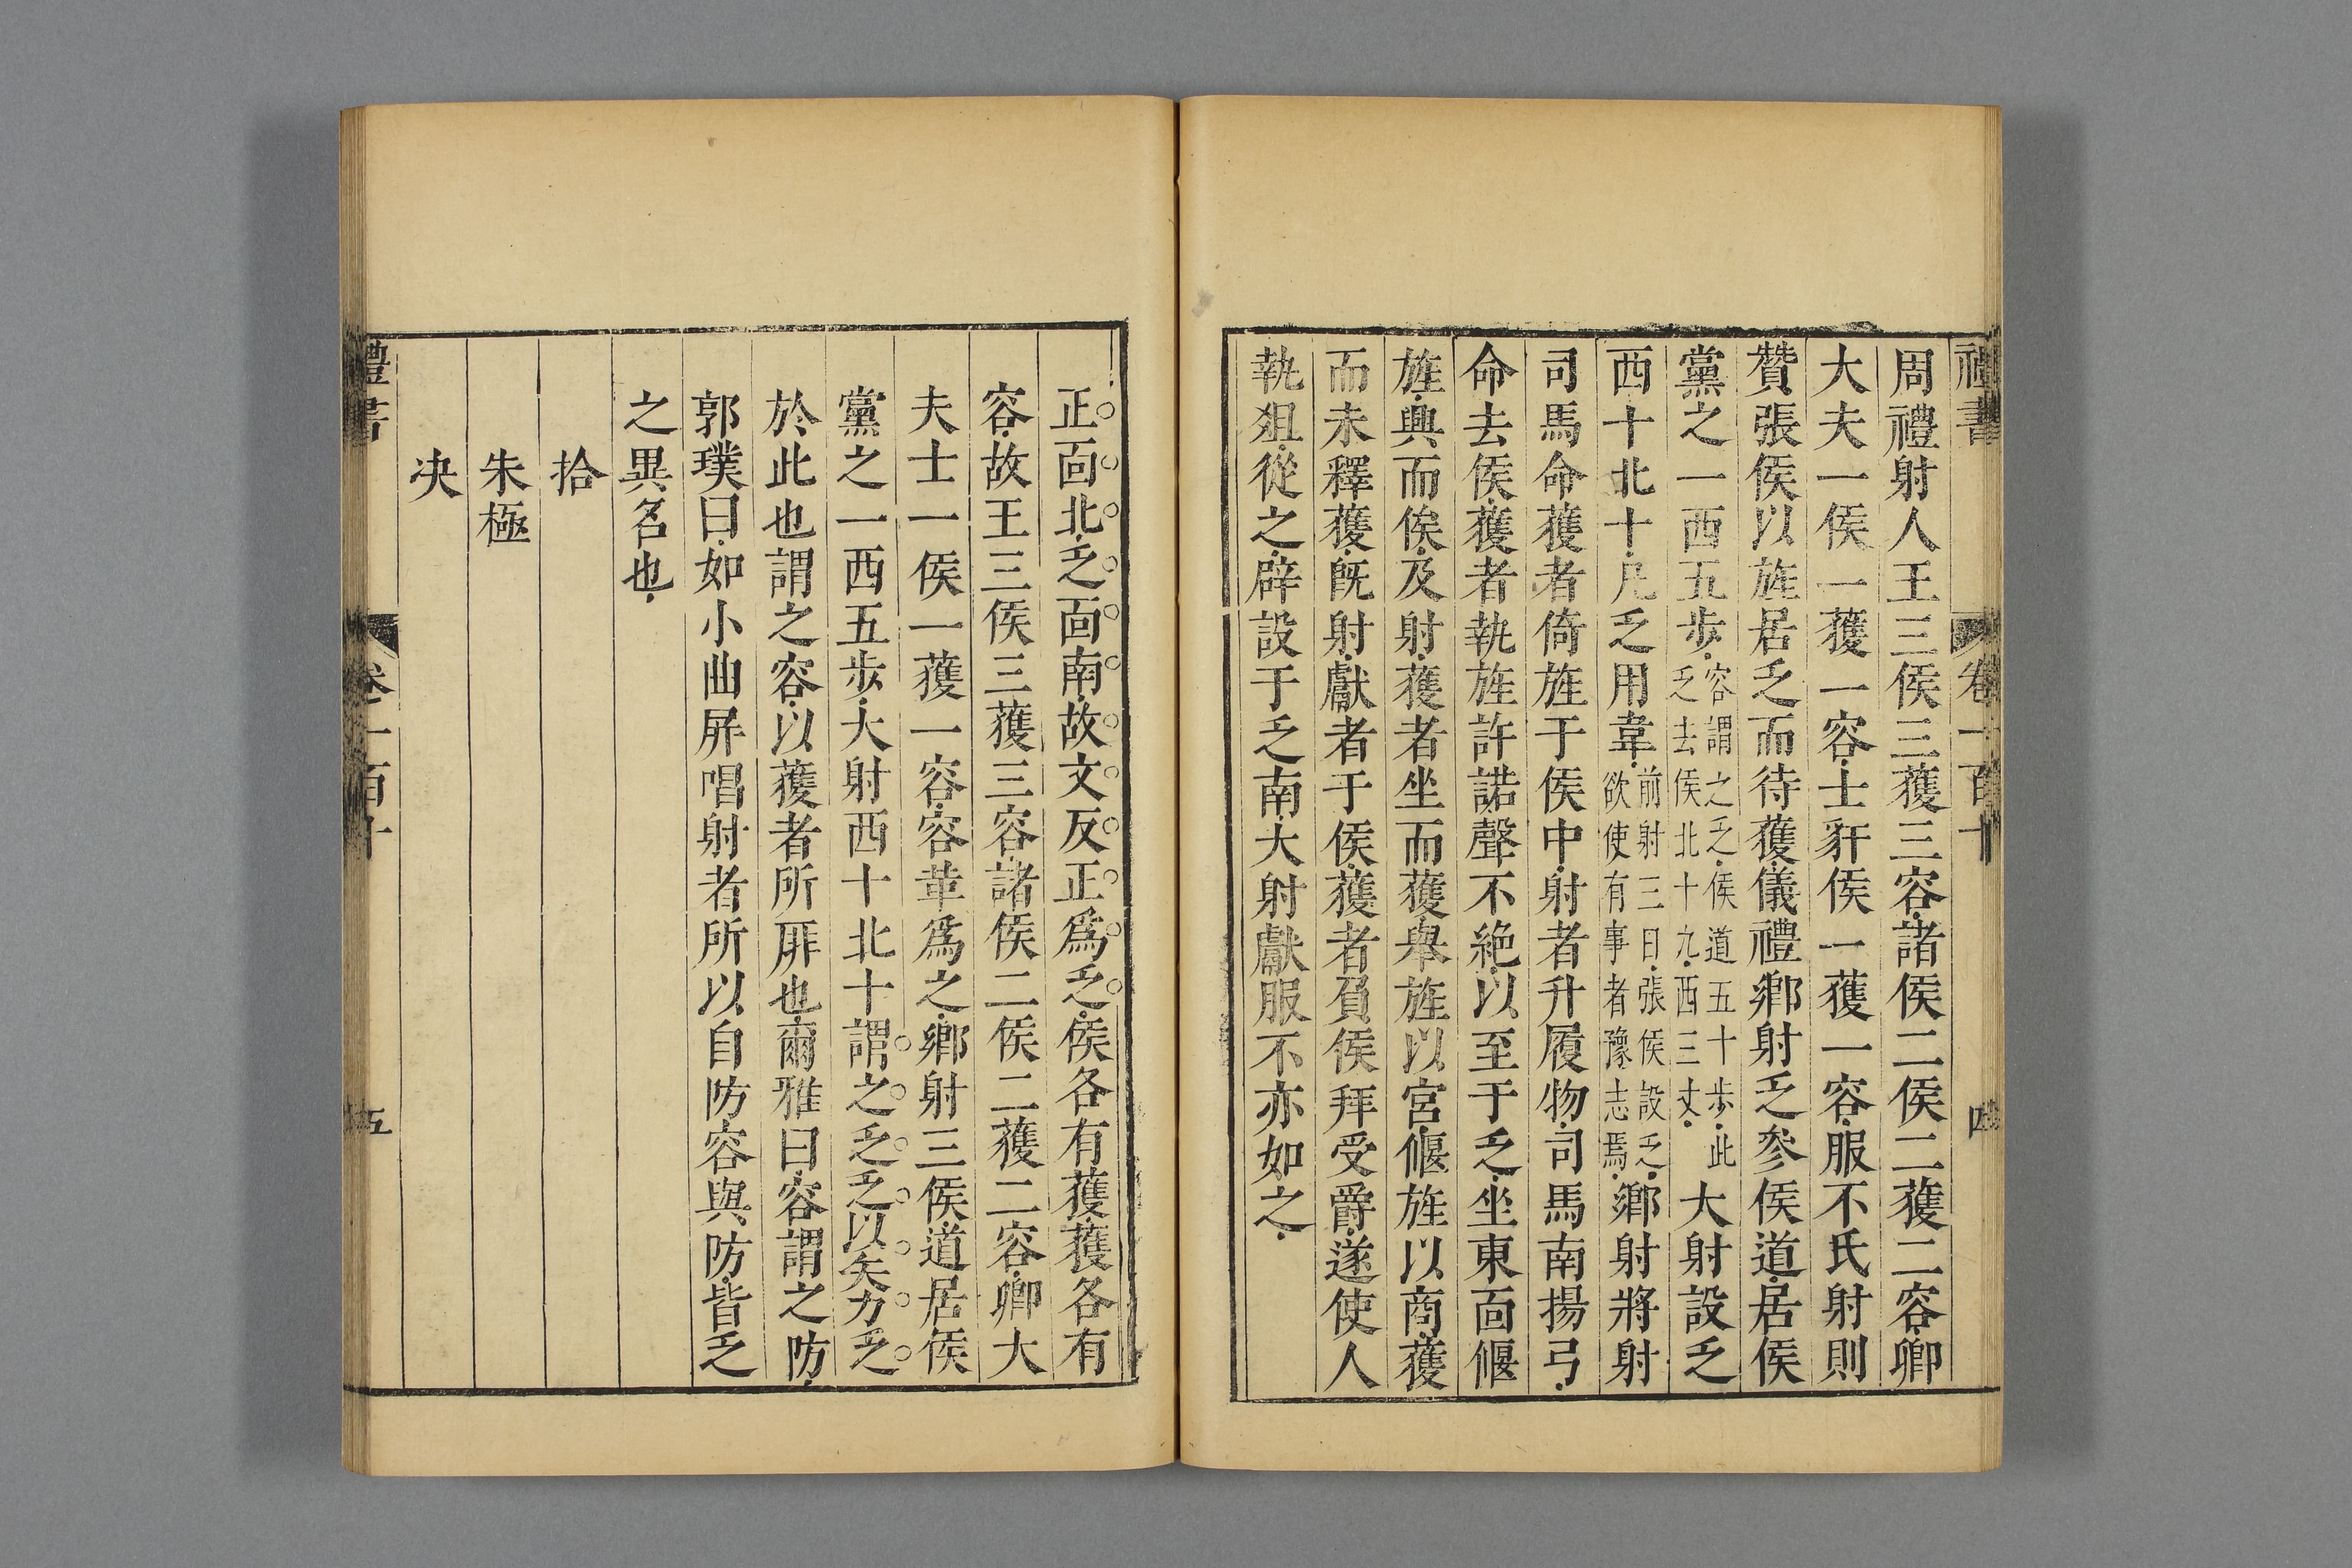 禮書 卷一百十 四
周禮射人王三侯三獲三容諸侯二侯二獲二容卿
大夫一侯一獲一容士豻侯一獲一容服不氏射則
贊張侯以旌居乏而待獲儀禮鄉射乏參侯道居侯
黨之一西五步容謂之乏侯道五十步此乏去侯北十九西三丈大射設乏
西十北十凡乏用韋前射三日張侯設乏欲使有事者豫志焉鄉射將射
司馬命獲者倚旌于侯中射者升履物司馬南揚弓
命去侯獲者執旌許諾聲不絕以至于乏坐東面偃
旌興而俟及射獲者坐而獲舉旌以宮偃旌以商獲
而未釋獲旣射獻者于侯獲者負侯拜受爵遂使人
執俎從之辟設于乏南大射獻服不亦如之
正面北乏面南故文反正爲乏侯各有獲獲各有
容故王三侯三獲三容諸侯二侯二獲二容卿大
夫士一侯一獲一容容革爲之鄉射三侯道居侯
黨之一西五步大射西十北十謂之乏乏以矢力乏
於此也謂之容以獲者所厞也爾雅曰容謂之防
郭璞曰如小曲屏唱射者所以自防容與防皆乏
之異名也
拾
朱極
決
禮書 卷一百十 五